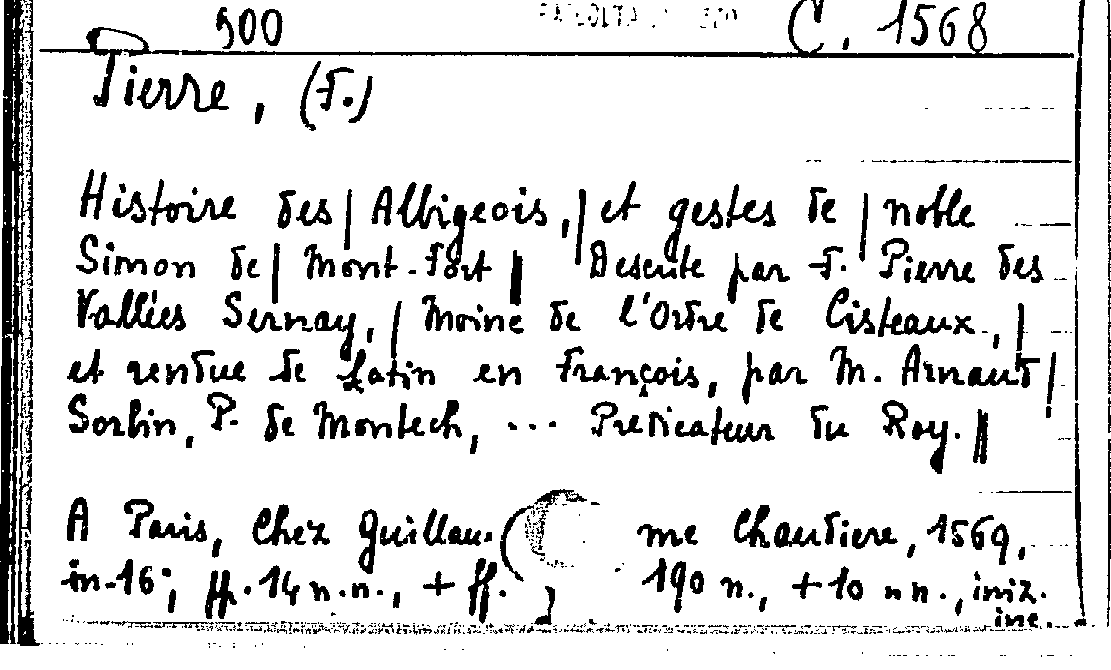 500 C. 1568
Pierre, (F.)
Histoire des | Albigeois, | et gestes de | noble
Simon de | Mont-Fort || Descrite par F. Pierre des
Vallées Sernay, | Moine de l'Ordre de Cisteaux, |
et rendue de Latin en François, par M. Arnaud |
Sorbin, P. de Montech, ... Predicateur du Roy. ||
A Paris, Chez Guillaume Chaudiere, 1569,
in-16°; ff. 14 n.n., + ff. 190 n., + 10 nn., iniz.
inc.